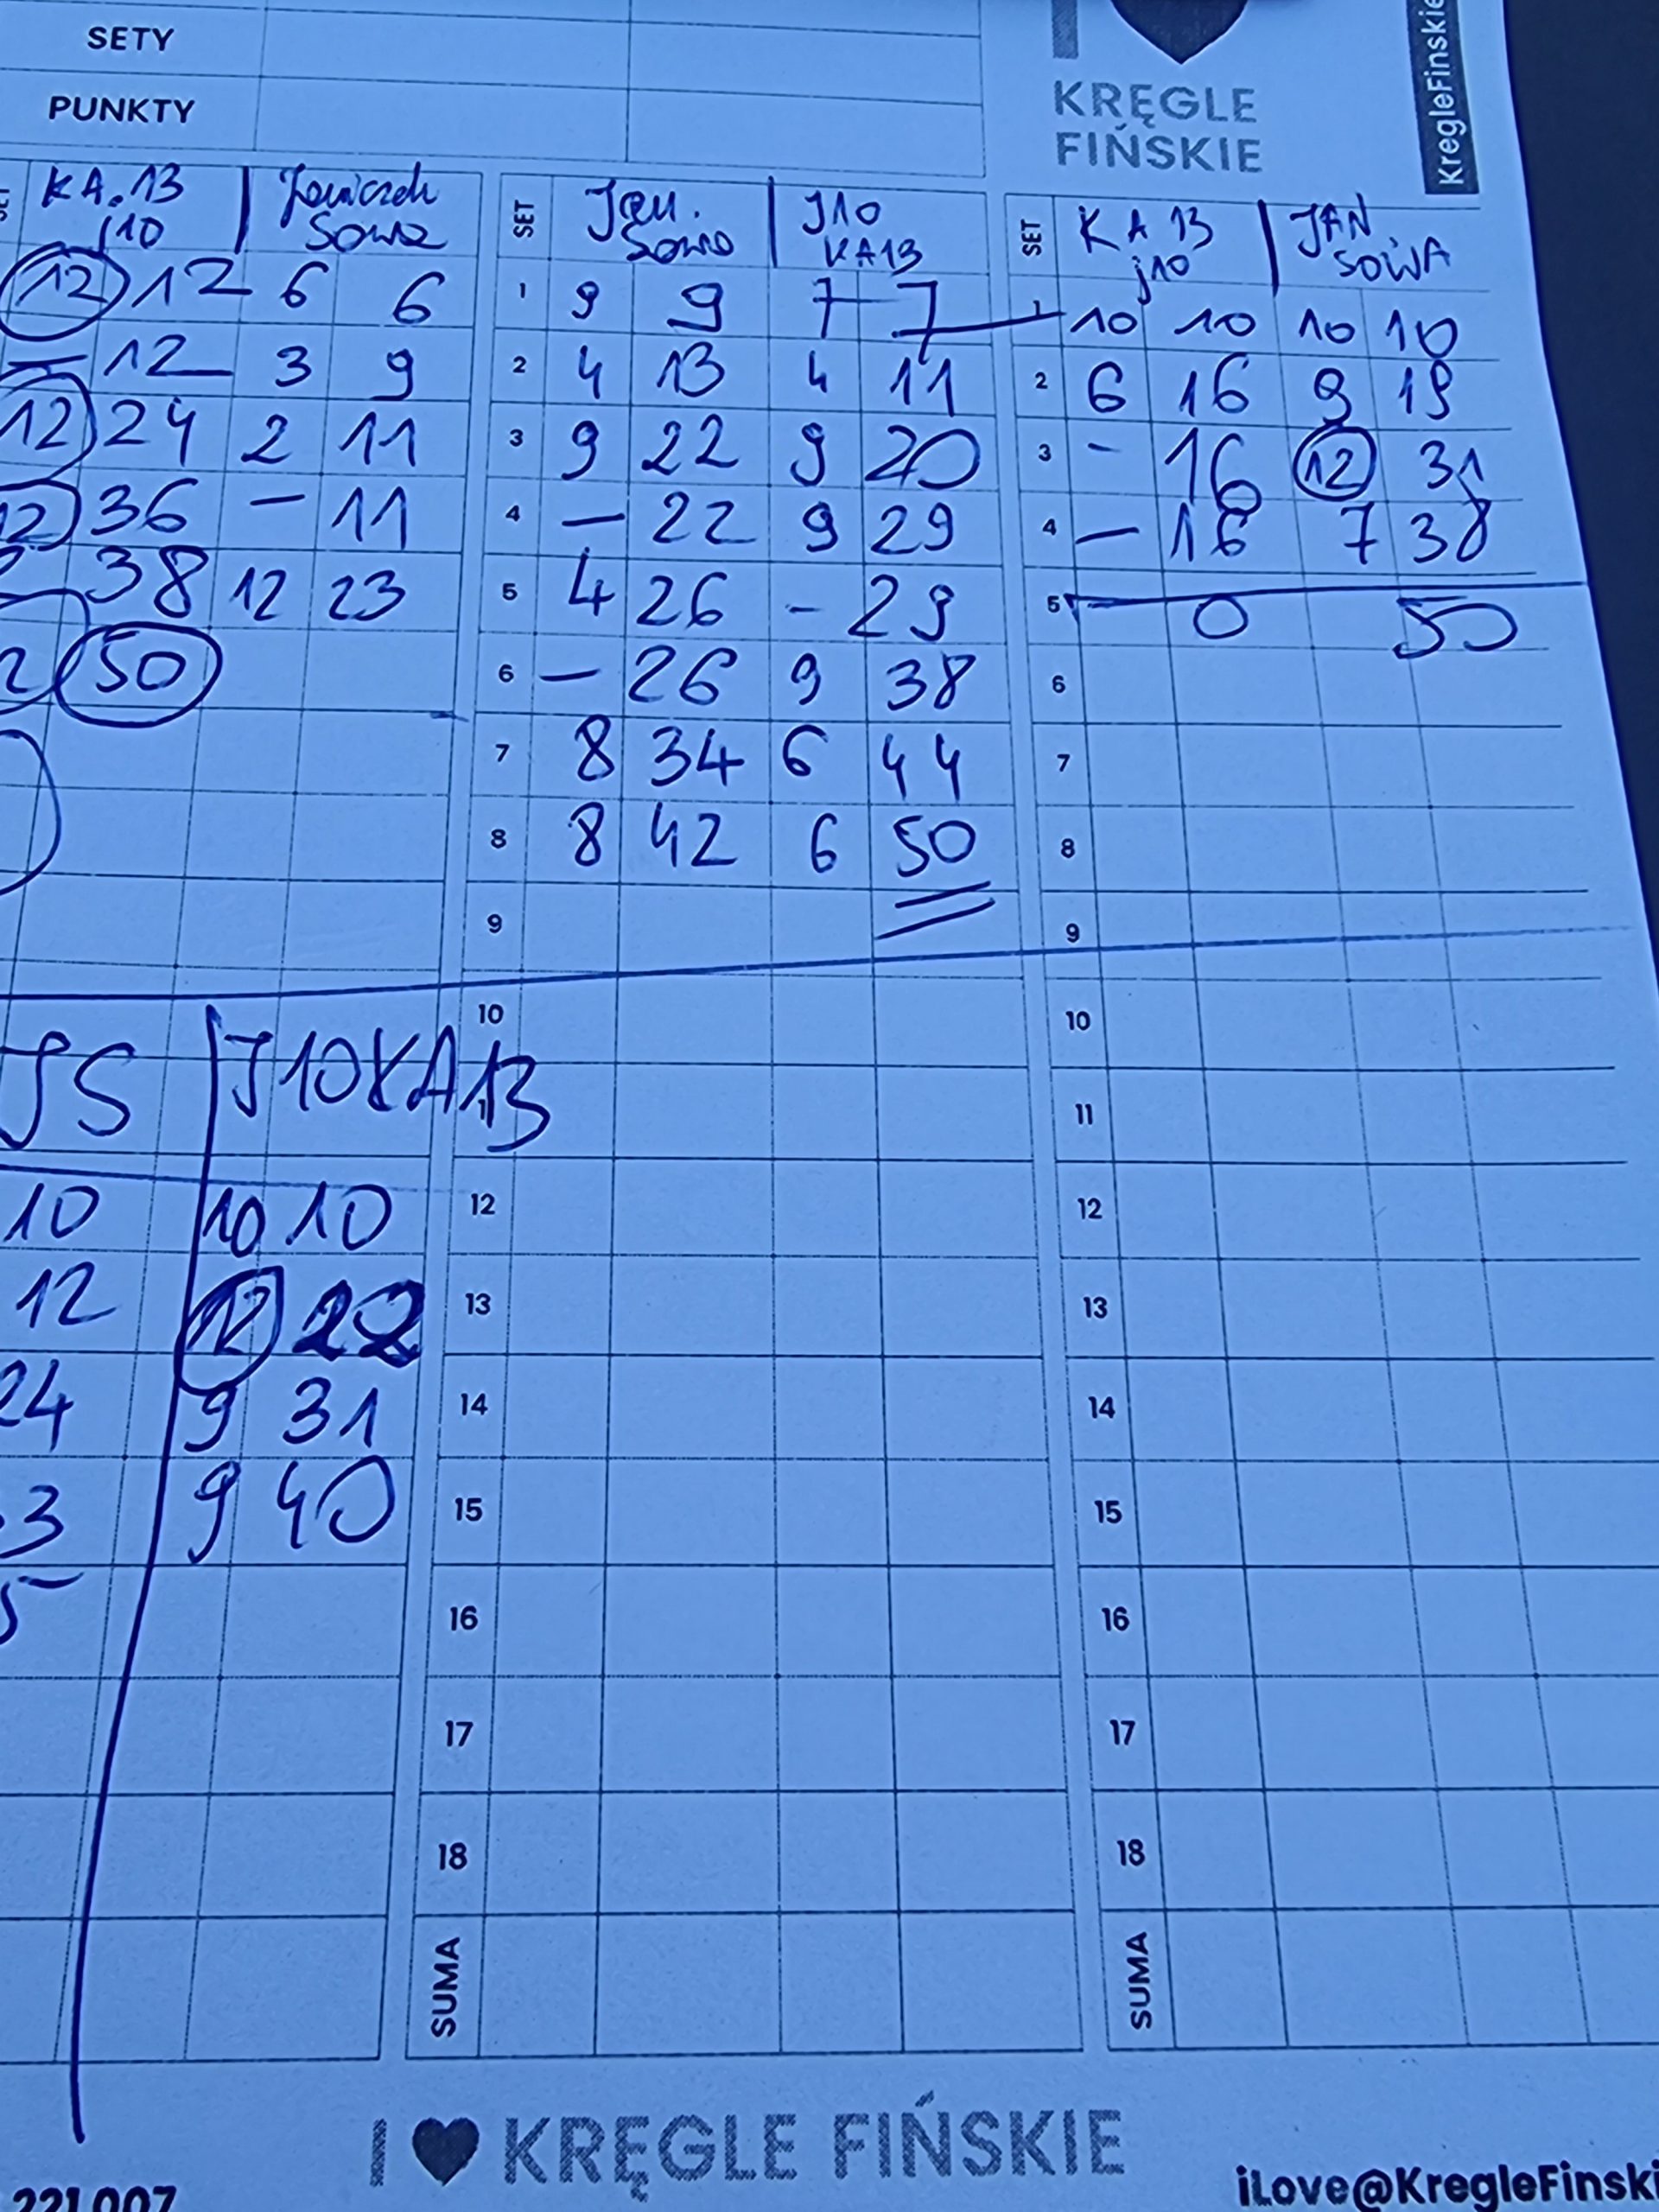 SETY
PUNKTY
KRĘGLE
FIŃSKIE
KregleFinskie
KA.13 | Janiczek
j10 Sowa
12 12 6 6
— 12 3 9
12 24 2 11
12 36 — 11
2 38 12 23
2 50
SET Jan. | J10
Sowa KA13
1 9 9 7 7
2 4 13 4 11
3 9 22 9 20
4 — 22 9 29
5 4 26 - 29
6 — 26 9 38
7 8 34 6 44
8 8 42 6 50
9
10
12
13
14
15
16
17
18
SUMA
SET KA 13 | JAN
j10 SOWA
1 10 10 10 10
2 6 16 9 19
3 - 16 12 31
4 — 16 7 38
5 0 50
6
7
8
9
10
11
12
13
14
15
16
17
18
SUMA
JS | J10KA13
10 10 10
12 12 22
24 9 31
3 9 40
5
I ♥ KRĘGLE FIŃSKIE
221 007
iLove@KregleFinski